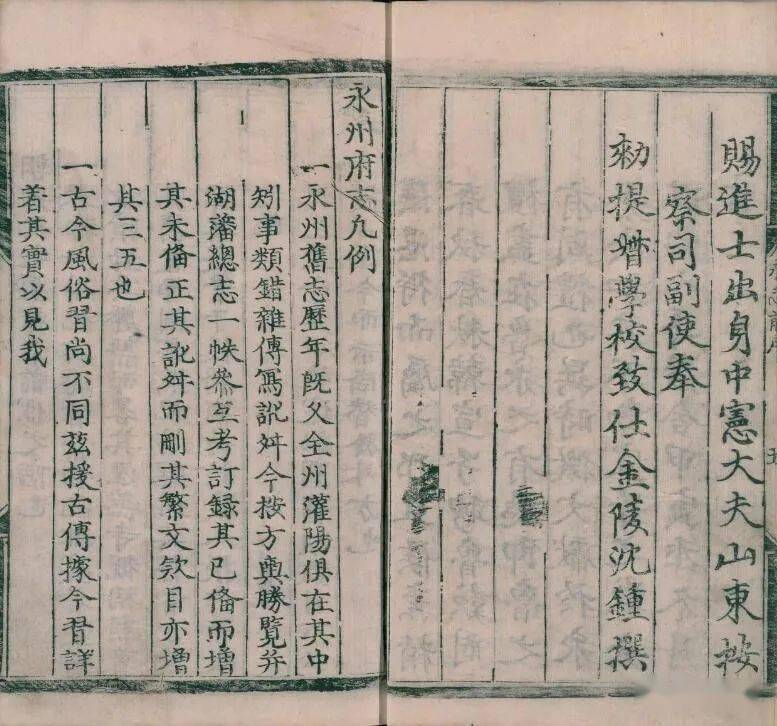 賜進士出身中憲大夫山東按
察司副使奉
勑提督學校致仕金陵沈鍾撰
永州府志凡例
一永州舊志歷年既久全州灌陽俱在其中
矧事類錯雜傳寫訛舛今按方輿勝覽并
湖藩總志一帙參互考訂録其已俻而增
其未俻正其訛舛而刪其繁文欸目亦増
其三五也
一古今風俗習尚不同兹援古傳據今昔詳
着其實以見我